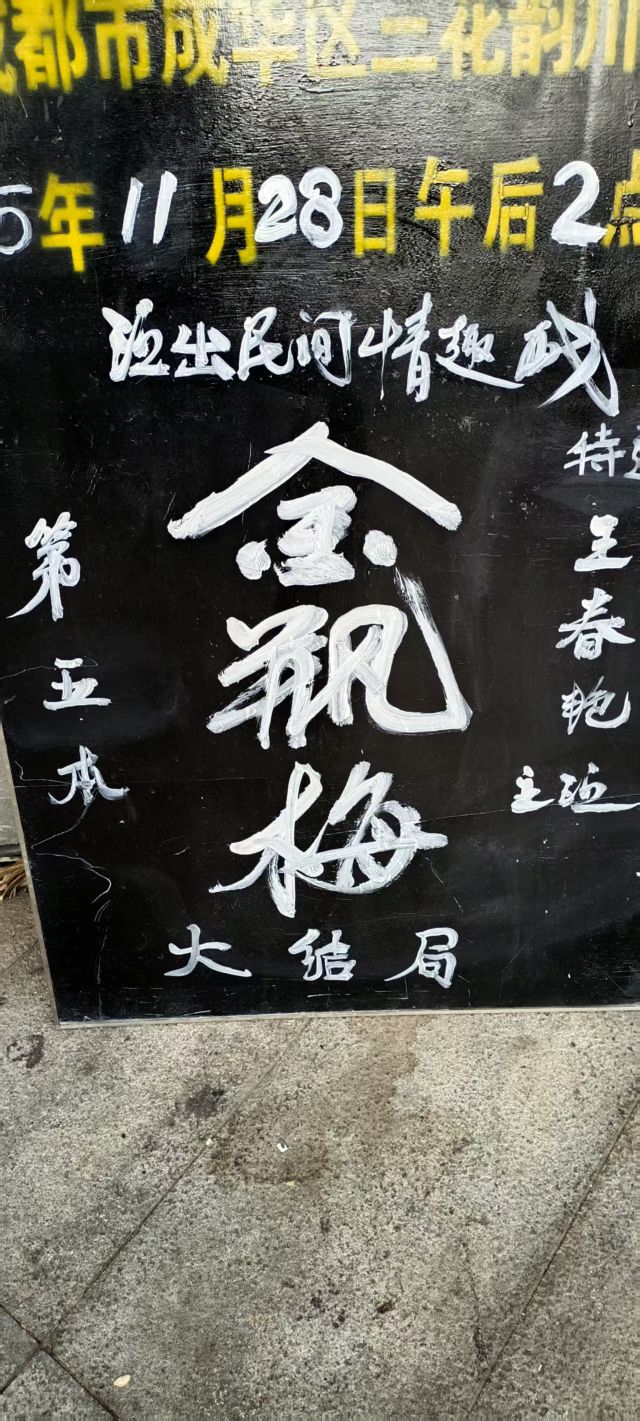 成都市成华区二化韵川
5年11月28日午后2点
演出民间情趣戏
金瓶梅
第五本
特邀
王春艳
主演
大结局